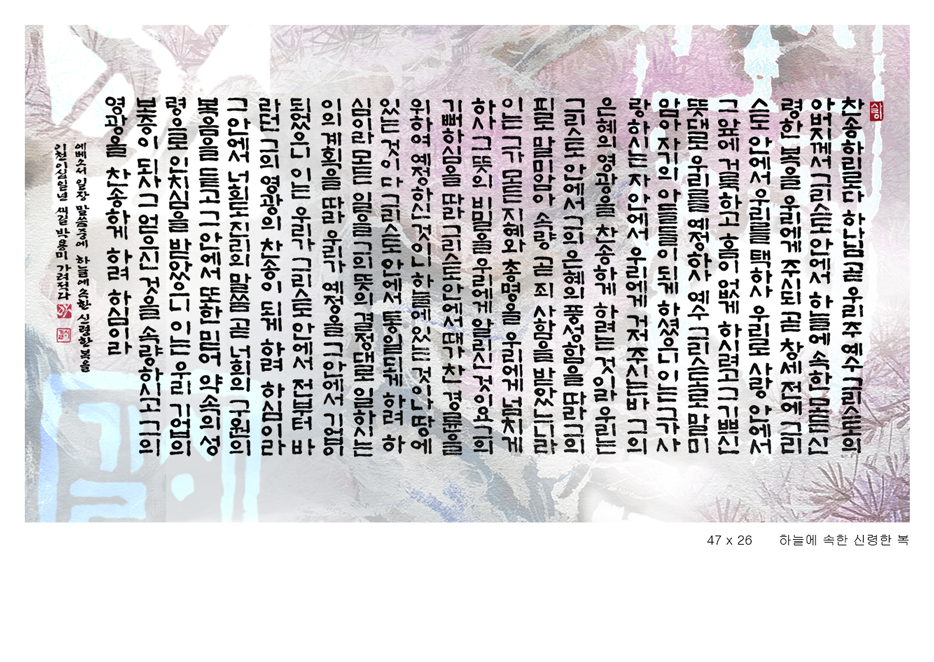 찬송하리로다 하나님 곧 우리 주 예수 그리스도의
아버지께서 그리스도 안에서 하늘에 속한 모든 신
령한 복을 우리에게 주시되 곧 창세 전에 그리
스도 안에서 우리를 택하사 우리로 사랑 안에서
그 앞에 거룩하고 흠이 없게 하시려고 그 기쁘신
뜻대로 우리를 예정하사 예수 그리스도로 말미
암아 자기의 아들들이 되게 하셨으니 이는 그가 사
랑하시는 자 안에서 우리에게 거저 주시는 바 그의
은혜의 영광을 찬송하게 하려는 것이라 우리는
그리스도 안에서 그의 은혜의 풍성함을 따라 그의
피로 말미암아 속량 곧 죄 사함을 받았느니라
이는 그가 모든 지혜와 총명을 우리에게 넘치게
하사 그 뜻의 비밀을 우리에게 알리신 것이요 그의
기뻐하심을 따라 그리스도 안에서 때가 찬 경륜을
위하여 예정하신 것이니 하늘에 있는 것이나 땅에
있는 것이 다 그리스도 안에서 통일되게 하려 하
심이라 모든 일을 그의 뜻의 결정대로 일하시는
이의 계획을 따라 우리가 예정을 그 안에서 기업이
되었으니 이는 우리가 그리스도 안에서 전부터 바
라던 그의 영광의 찬송이 되게 하려 하심이라
그 안에서 너희도 진리의 말씀 곧 너희의 구원의
복음을 듣고 그 안에서 또한 믿어 약속의 성
령으로 인치심을 받았으니 이는 우리 기업의
보증이 되사 그 얻으신 것을 속량하시고 그의
영광을 찬송하게 하려 하심이라
에베소서 일장 말씀중에 하늘에 속한 신령한 복을
이천이십일년 새길 박용미 가려적다
47 x 26 하늘에 속한 신령한 복